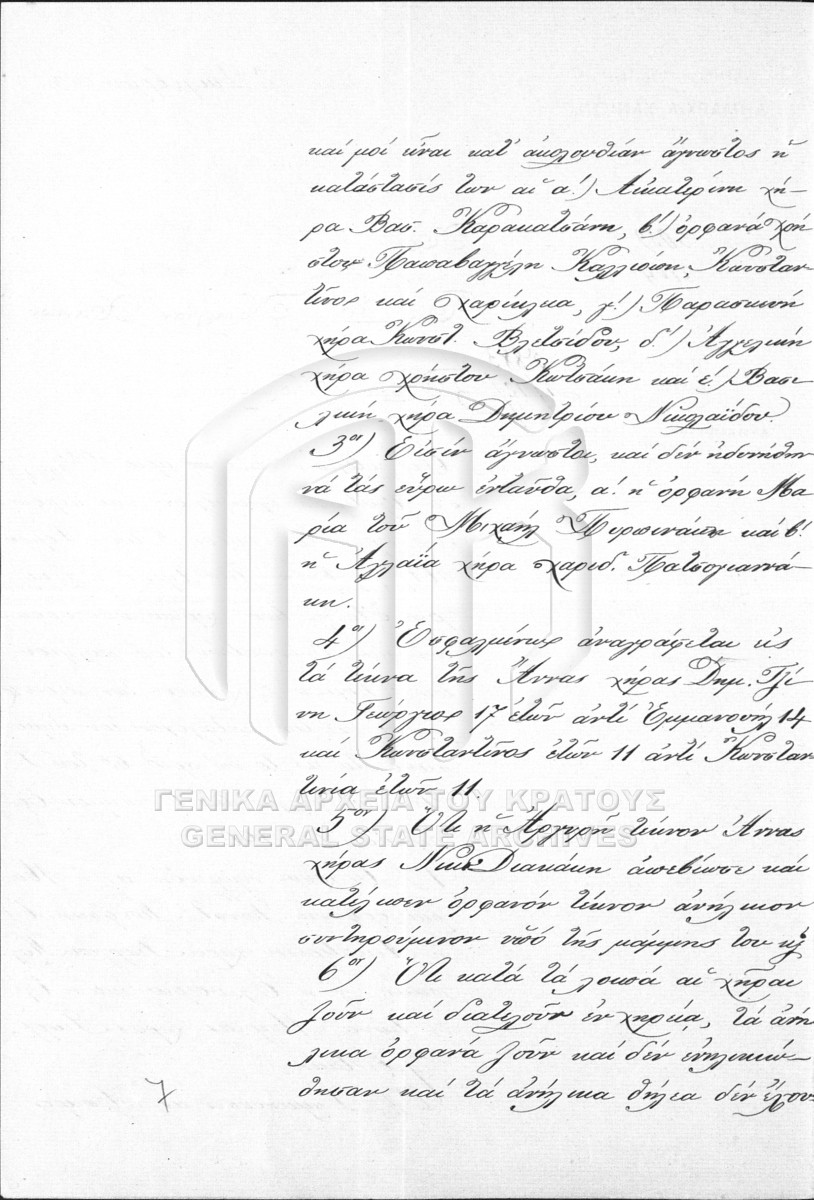 καί μοί εἶναι κατ' ἀκολουθίαν ἄγνωστος ἡ
κατάστασίς των αἱ α!) Αἰκατερίνη χή-
ρα Βασ. Καρακατσάνη, β!) ὀρφανά Χρή
στου Παπαβαγγέλη Καλλιόπη, Κωνσταν
τῖνος καί Χαρίκλεια, γ!) Παρασκευή
χήρα Κωνστ. Βλετσίδου, δ!) Ἀγγελική
χήρα Χρήστου Κωτσάκη καί ε!) Βασι
λική χήρα Δημητρίου Νικολαΐδου.
3ον) Εἰσίν ἄγνωστοι, καί δέν ἠδυνήθην
νά τάς εὕρω ἐνταῦθα, α! ἡ ὀρφανή Μα
ρία τοῦ Μιχαήλ καί β!
ἡ Ἀγλαΐα χήρα Χαριδ. Πατσογιαννά-
κη.
4ον) Ἐσφαλμένως ἀναγράφεται εἰς
τά τέκνα τῆς Ἄννας χήρας Δημ.
Γεώργιος 17 ἐτῶν ἀντί Ἐμμανουήλ 14
καί Κωνσταντῖνος ἐτῶν 11 ἀντί Κωνσταν
τινία ἐτῶν 11
5ον) Ὅτι ἡ Ἀργυρῆ τέκνον Ἄννας
χήρας Νικ. Διακάκη ἀπεβίωσε καί
κατέλιπεν ὀρφανόν τέκνον ἀνήλικον
συντηρούμενον ὑπό τῆς μάμμης του καί
6ον) Ὅτι κατά τά λοιπά αἱ χῆραι
ζοῦν καί διατελοῦν ἐν χηρείᾳ, τά ἀνή
λικα ὀρφανά ζοῦν καί δέν ἐνηλικιώ-
θησαν καί τά ἀνήλικα θήλεα δέν ἦλθον
7
ΓΕΝΙΚΑ ΑΡΧΕΙΑ ΤΟΥ ΚΡΑΤΟΥΣ
GENERAL STATE ARCHIVES